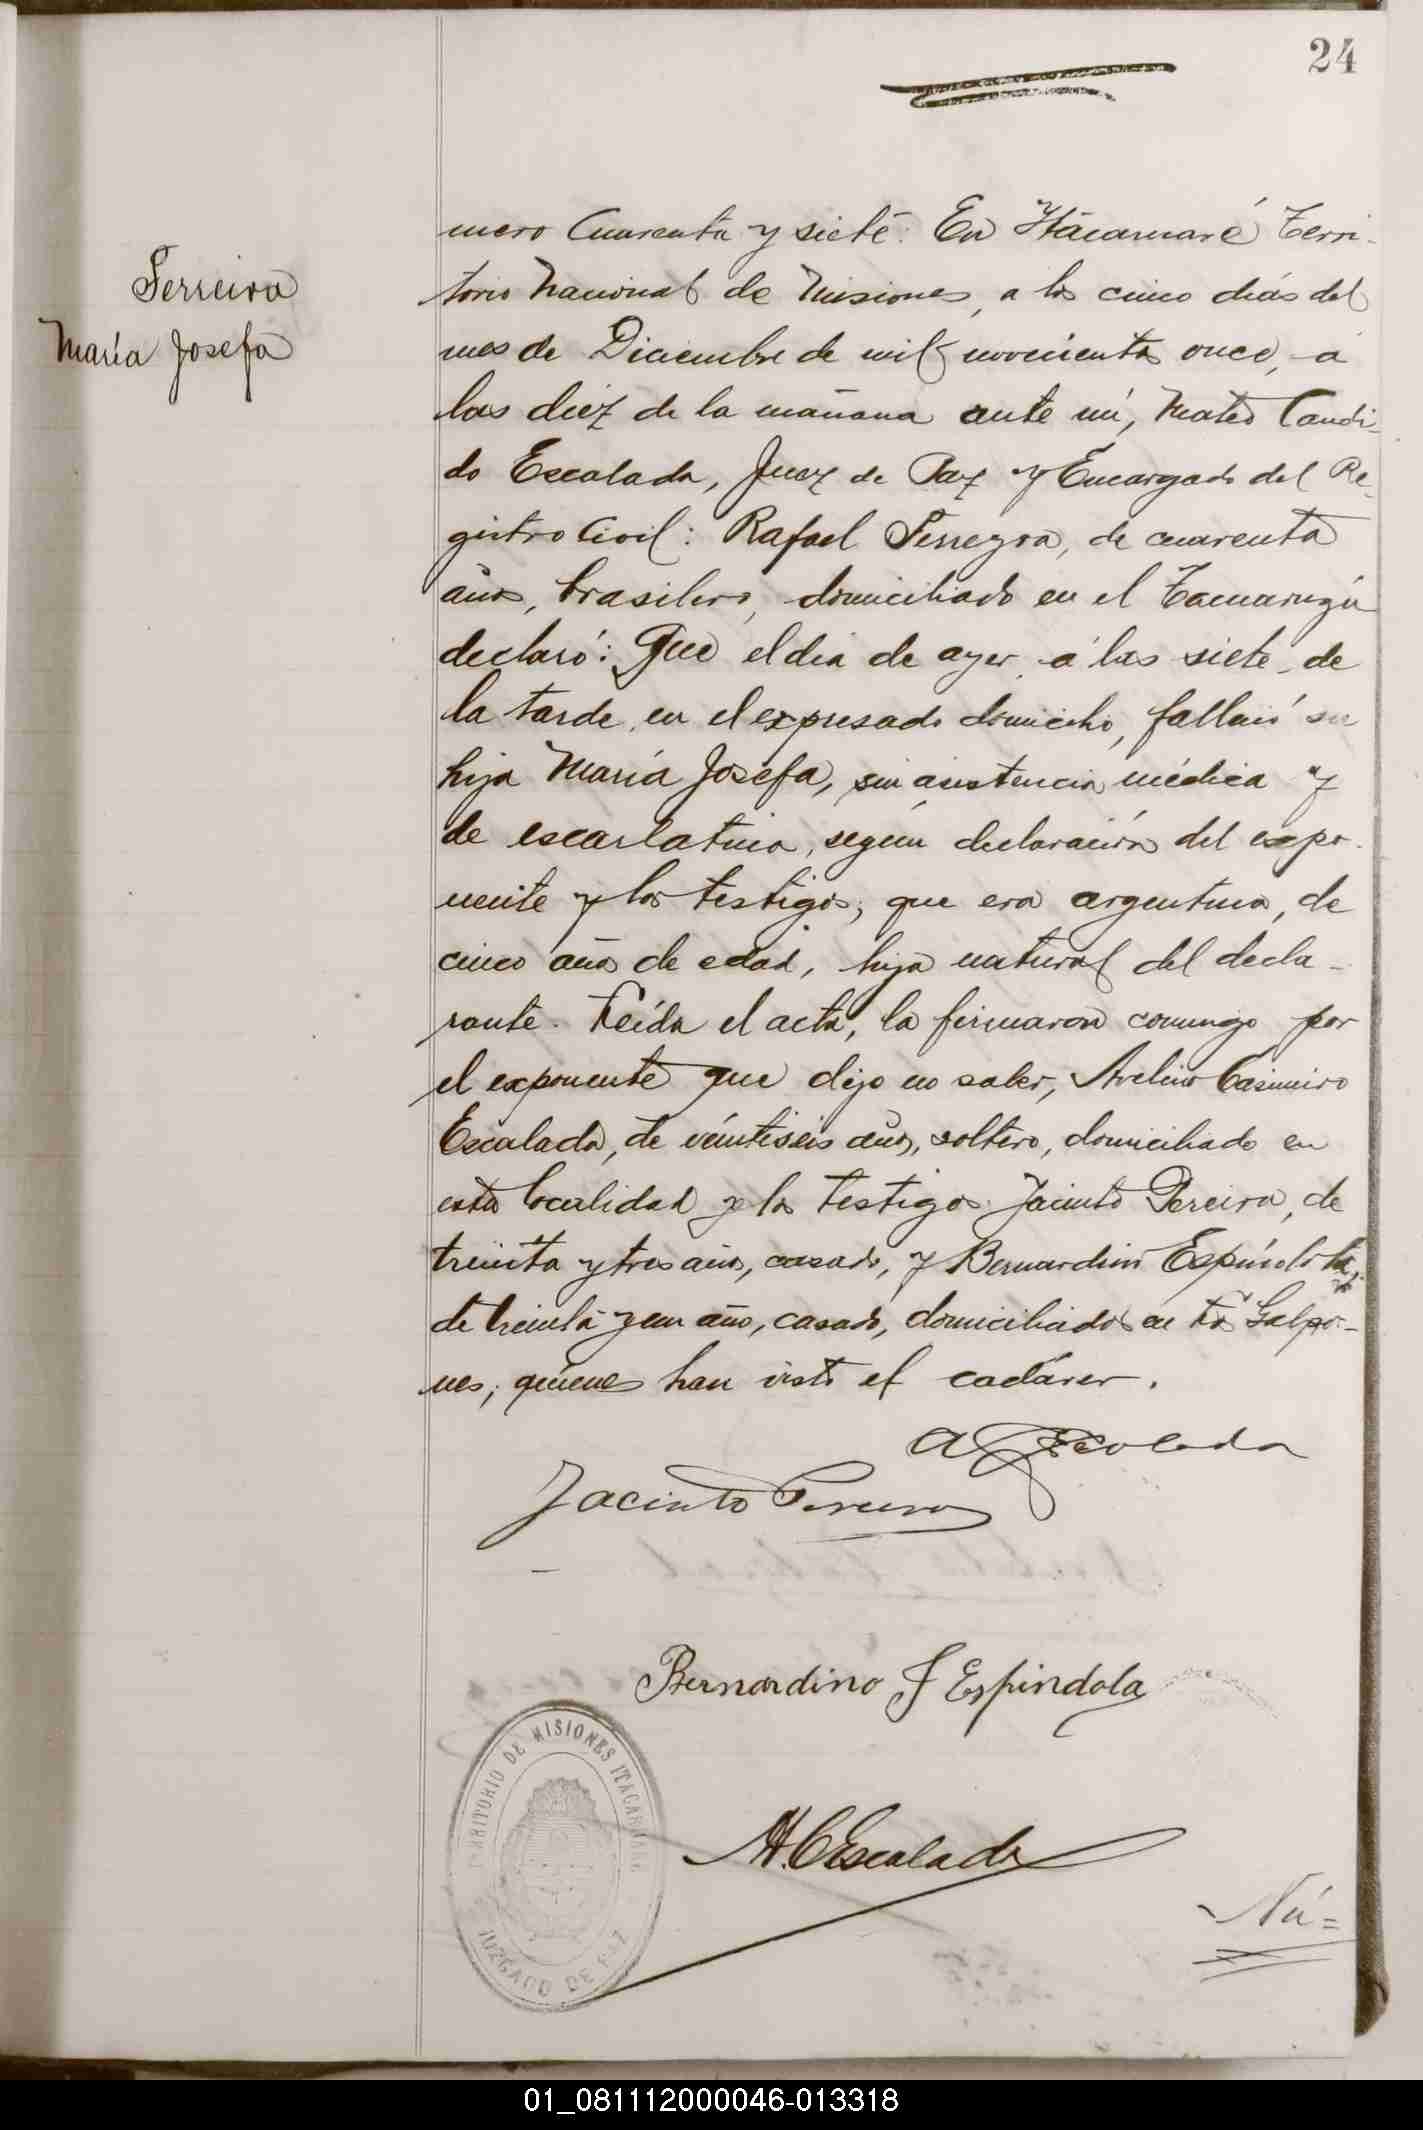 24
Ferreira
María Josefa
mero Cuarenta y siete. En Itacaruaré Terri-
torio Nacional de Misiones, a los cinco días del
mes de Diciembre de mil novecientos once, á
las diez de la mañana ante mí, Mateo Candi-
do Escalada, Juez de Paz y Encargado del Re-
gistro Civil: Rafael Ferreyra, de cuarenta
años, brasilero, domiciliado en el
declaró: Que el dia de ayer á las siete de
la tarde, en el expresado domicilio, falleció su
hija María Josefa, sin asistencia médica y
de escarlatina, según declaración del expo-
nente y los testigos; que era argentina, de
cinco años de edad, hija natural del decla-
rante. Leída el acta, la firmaron conmigo por
el exponente que dijo no saber, Avelino Casimiro
Escalada, de veintiseis años, soltero, domiciliado en
esta localidad y los testigos Jacinto Pereira, de
treinta y tres años, casado, y Bernardino Espíndola,
de treinta y un años, casado, domiciliados en Los Galpo-
nes; quienes han visto el cadáver.
A C Escalada
Jacinto Pereira
Bernardino F Espindola
M. C Escalada
TERRITORIO DE MISIONES ITACARUARE
JUZGADO DE PAZ
Nú=
01_081112000046-013318